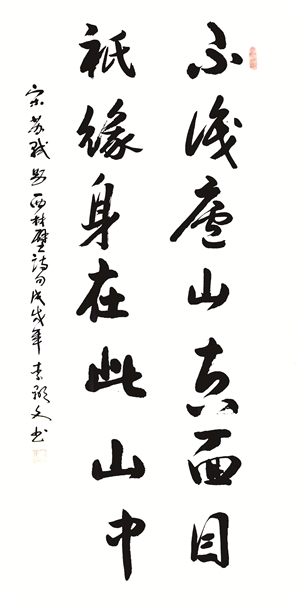 不識廬山真面目
祇緣身在此山中
宋苏轼題西林壁詩句戊戌年袁頌文书